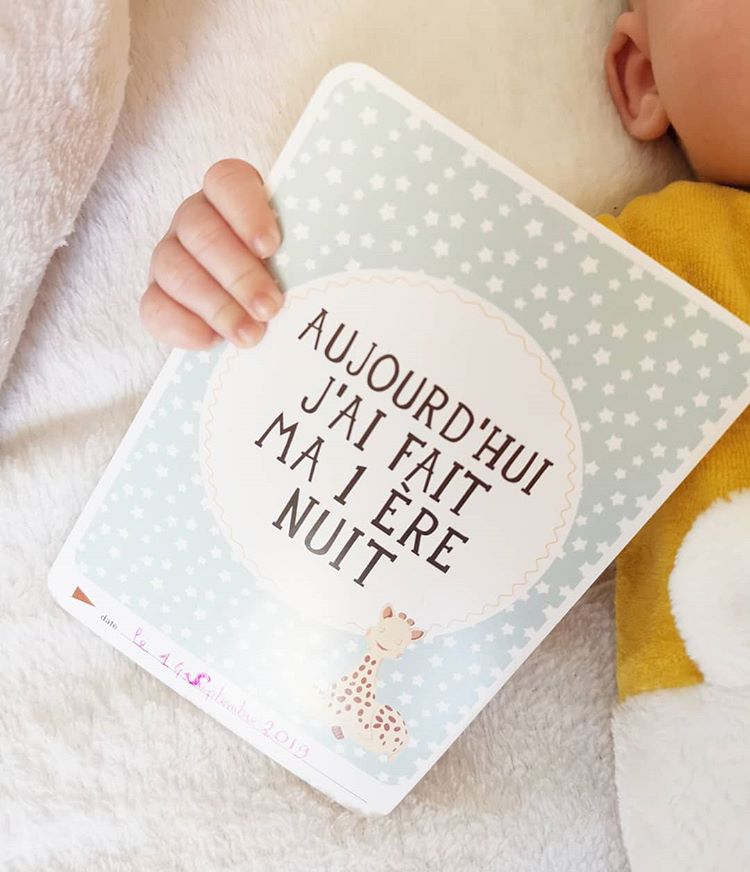 AUJOURD'HUI
J'AI FAIT
MA 1 ÈRE
NUIT
date le 14 Septembre 2019